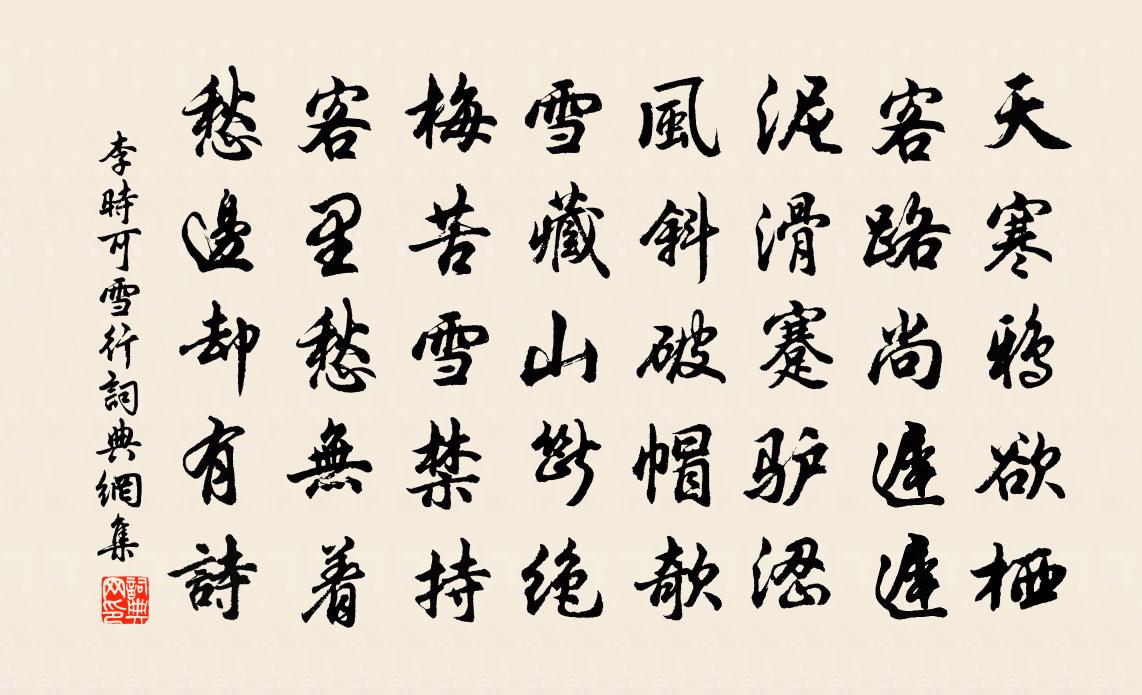 天寒鴉欲栖
客路尚遲遲
泥滑蹇驴涩
風斜破帽欹
雪藏山斷絶
梅苦雪禁持
客里愁無着
愁邊却有詩
李時可雪行詞典網集
詞典网印